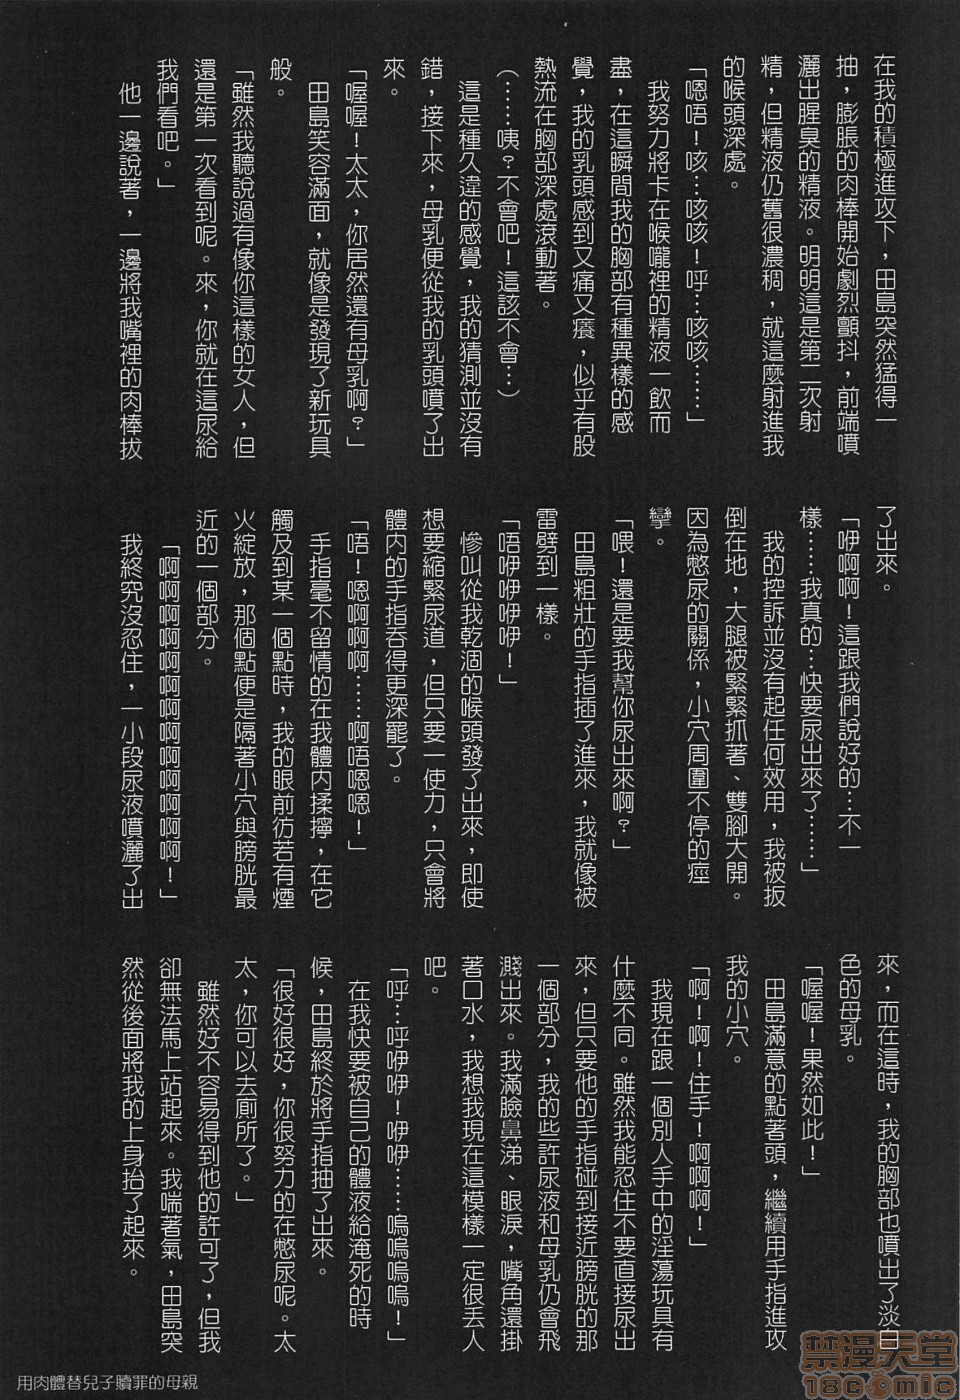 在我的積極進攻下，田島突然猛得一
抽，膨脹的肉棒開始劇烈顫抖，前端噴
灑出腥臭的精液。明明這是第二次射
精，但精液仍舊很濃稠，就這麼射進我
的喉頭深處。
「嗯唔！咳…咳咳！呼…咳咳……」
我努力將卡在喉嚨裡的精液一飲而
盡，在這瞬間我的胸部有種異樣的感
覺，我的乳頭感到又痛又癢，似乎有股
熱流在胸部深處滾動著。
（……咦？不會吧！這該不會…）
這是種久違的感覺，我的猜測並沒有
錯，接下來，母乳便從我的乳頭噴了出
來。
「喔喔！太太，你居然還有母乳啊？」
田島笑容滿面，就像是發現了新玩具
般。
「雖然我聽說過有像你這樣的女人，但
還是第一次看到呢。來，你就在這尿給
我們看吧。」
他一邊說著，一邊將我嘴裡的肉棒拔
了出來。
「咿啊啊！這跟我們說好的…不一
樣……我真的…快要尿出來了……」
我的控訴並沒有起任何效用，我被扳
倒在地，大腿被緊緊抓著、雙腳大開。
因為憋尿的關係，小穴周圍不停的痙
攣。
「喂！還是要我幫你尿出來啊？」
田島粗壯的手指插了進來，我就像被
雷劈到一樣。
「唔咿咿咿咿！」
慘叫從我乾涸的喉頭發了出來，即使
想要縮緊尿道，但只要一使力，只會將
體內的手指吞得更深罷了。
「唔！嗯啊啊啊……啊唔嗯嗯！」
手指毫不留情的在我體內揉擰，在它
觸及到某一個點時，我的眼前彷若有煙
火綻放，那個點便是隔著小穴與膀胱最
近的一個部分。
「啊啊啊啊啊啊啊啊啊啊啊啊啊！」
我終究沒忍住，一小段尿液噴灑了出
來，而在這時，我的胸部也噴出了淡白
色的母乳。
「喔喔！果然如此！」
田島滿意的點著頭，繼續用手指進攻
我的小穴。
「啊！啊！住手！啊啊啊！」
我現在跟一個別人手中的淫蕩玩具有
什麼不同。雖然我能忍住不要直接尿出
來，但只要他的手指碰到接近膀胱的那
一個部分，我的些許尿液和母乳仍會飛
濺出來。我滿臉鼻涕、眼淚，嘴角還掛
著口水，我想我現在這模樣一定很丟人
吧。
「呼…呼咿咿！咿咿……嗚嗚嗚嗚！」
在我快要被自己的體液給淹死的時
候，田島終於將手指抽了出來。
「很好很好，你很努力的在憋尿呢。太
太，你可以去廁所了。」
雖然好不容易得到他的許可了，但我
卻無法馬上站起來。我喘著氣，田島突
然從後面將我的上身抬了起來。
用肉體替兒子贖罪的母親
禁漫天堂
18comic